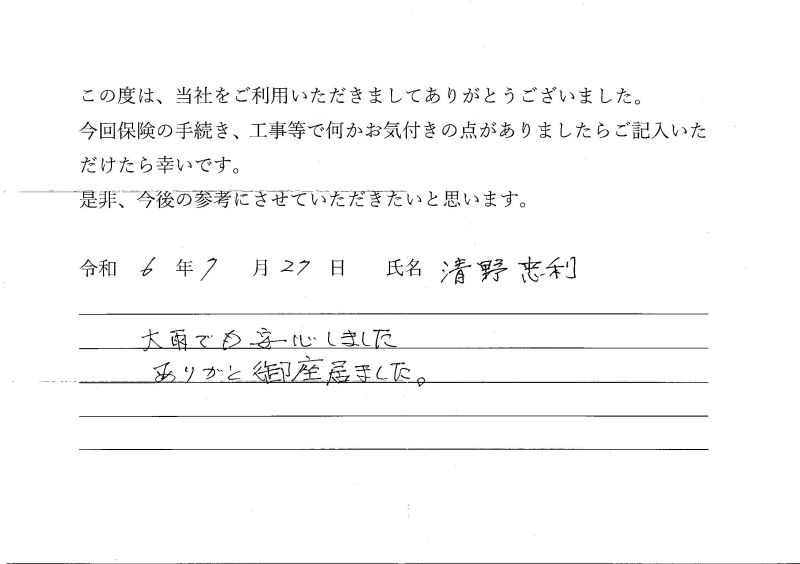 この度は、当社をご利用いただきましてありがとうございました。
今回保険の手続き、工事等で何かお気付きの点がありましたらご記入いた
だけたら幸いです。
是非、今後の参考にさせていただきたいと思います。
令和 6 年 7 月 27 日 氏名 清野忠利
大雨でも安心しました
ありがと御座居ました。